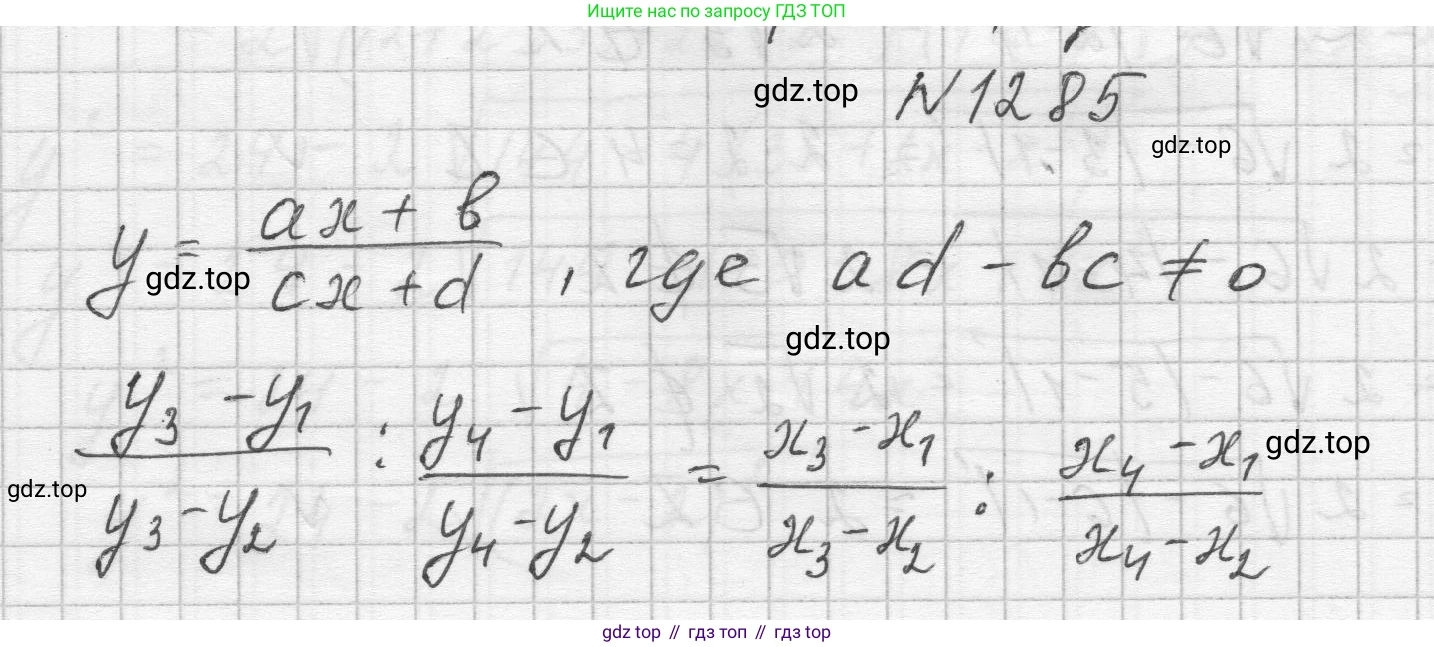 Ищите нас по запросу ГДЗ ТОП
gdz.top N1285
gdz.top
y = (ax + b)/(cx + d), где ad - bc ≠ 0
gdz.top
gdz.top
(y₃ - y₁)/(y₃ - y₂) : (y₄ - y₁)/(y₄ - y₂) = (x₃ - x₁)/(x₃ - x₂) : (x₄ - x₁)/(x₄ - x₂)
gdz.top
gdz.top
gdz top // гдз топ // gdz top